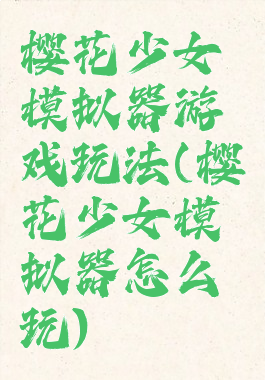 樱花少女
模拟器游
戏玩法(樱
花少女模
拟器怎么
玩)